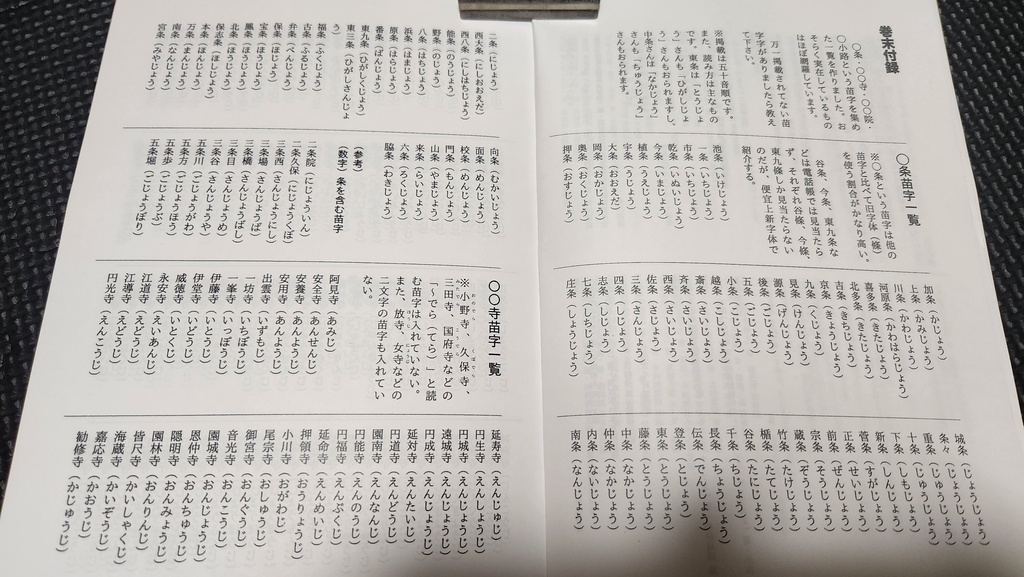 巻末付録
〇条・〇〇寺・〇〇院・
〇小路という苗字を集め
た一覧を作りました。お
そらく実在しているもの
はほぼ網羅しています。
万一掲載されてない苗
字がありましたら教え
て下さい。
※掲載は五十音順です。
また、読み方は主なもの
です。東条は「とうじょ
う」さんも「ひがしじょ
う」さんもおられますし、
中条さんは「なかじょう」
さんも「ちゅうじょう」
さんもおられます。
〇条苗字一覧
※〇条という苗字は他の
苗字と比べて旧字体（條）
を使う割合がかなり高い。
谷条、今条、東九条な
どは電話帳では見当たら
ず、それぞれ谷條、今條、
東九條しか見当たらない
のだが、便宜上新字体で
紹介する。
池条（いけじょう）
一条（いちじょう）
市条（いちじょう）
乾条（いぬいじょう）
今条（いまじょう）
植条（うえじょう）
宇条（うじょう）
大条（おおえだ）
岡条（おかじょう）
奥条（おくじょう）
押条（おすじょう）
加条（かじょう）
上条（かみじょう）
川条（かわじょう）
河原条（かわはらじょう）
喜多条（きたじょう）
北多条（きたじょう）
吉条（きちじょう）
京条（きょうじょう）
九条（くじょう）
見条（けんじょう）
源条（げんじょう）
後条（ごじょう）
五条（ごじょう）
小条（こじょう）
越条（こしじょう）
斎条（さいじょう）
斉条（さいじょう）
西条（さいじょう）
佐条（さじょう）
三条（さんじょう）
四条（しじょう）
志条（しじょう）
七条（しちじょう）
庄条（しょうじょう）
城条（じょうじょう）
条々（じょうじょう）
重条（じゅうじょう）
十条（じゅうじょう）
下条（しもじょう）
新条（しんじょう）
菅条（すがじょう）
正条（せいじょう）
前条（ぜんじょう）
宗条（そうじょう）
蔵条（ぞうじょう）
竹条（たけじょう）
楯条（たてじょう）
谷条（たにじょう）
千条（ちじょう）
長条（ちょうじょう）
伝条（でんじょう）
登条（とじょう）
東条（とうじょう）
藤条（とうじょう）
中条（なかじょう）
仲条（なかじょう）
内条（ないじょう）
南条（なんじょう）
二条（にじょう）
西大条（にしおおえだ）
西八条（にしはちじょう）
能条（のうじょう）
野条（のじょう）
八条（はちじょう）
浜条（はまじょう）
原条（はらじょう）
番条（ばんじょう）
東九条（ひがしくじょう）
東三条（ひがしさんじょ
う）
福条（ふくじょう）
古条（ふるじょう）
弁条（べんじょう）
保条（ほじょう）
宝条（ほうじょう）
鳳条（ほうじょう）
北条（ほうじょう）
保志条（ほしじょう）
本条（ほんじょう）
万条（まんじょう）
南条（なんじょう）
宮条（みやじょう）
向条（むかいじょう）
面条（めんじょう）
校条（めんじょう）
門条（もんじょう）
山条（やまじょう）
来条（らいじょう）
六条（ろくじょう）
脇条（わきじょう）
（参考）
（数字）条を含む苗字
二条院（にじょういん）
二条久保（にじょうくぼ）
三条西（さんじょうにし）
三条場（さんじょうば）
三条橋（さんじょうばし）
三条目（さんじょうめ）
三条谷（さんじょうや）
五条川（ごじょうがわ）
五条方（ごじょうほう）
五条歩（ごじょうぶ）
五条堀（ごじょうぼり）
〇〇寺苗字一覧
※小野寺、大久保寺、
三田寺、国府寺などの
「〜でら（てら）」と読
む苗字は入れていない。
また、放寺、女寺などの
二文字の苗字も入れてい
ない。
阿見寺（あみじ）
安全寺（あんぜんじ）
安養寺（あんようじ）
安用寺（あんようじ）
出雲寺（いずもじ）
一坊寺（いちぼうじ）
一峯寺（いっぽうじ）
伊藤寺（いとうじ）
伊堂寺（いどうじ）
威徳寺（いとくじ）
永安寺（えいあんじ）
江道寺（えどうじ）
江導寺（えどうじ）
円光寺（えんこうじ）
延寿寺（えんじゅじ）
円生寺（えんしょうじ）
円城寺（えんじょうじ）
遠城寺（えんじょうじ）
円成寺（えんじょうじ）
延対寺（えんたいじ）
円道寺（えんどうじ）
園南寺（えんなんじ）
円能寺（えんのうじ）
円福寺（えんぷくじ）
延命寺（えんめいじ）
押領寺（おうりょうじ）
小川寺（おがわじ）
尾宗寺（おしゅうじ）
御宮寺（おんぐうじ）
音光寺（おんこうじ）
園城寺（おんじょうじ）
恩仲寺（おんちゅうじ）
隠明寺（おんみょうじ）
園林寺（おんりんじ）
皆尺寺（かいしゃくじ）
海蔵寺（かいぞうじ）
嘉応寺（かおうじ）
勧修寺（かじゅうじ）